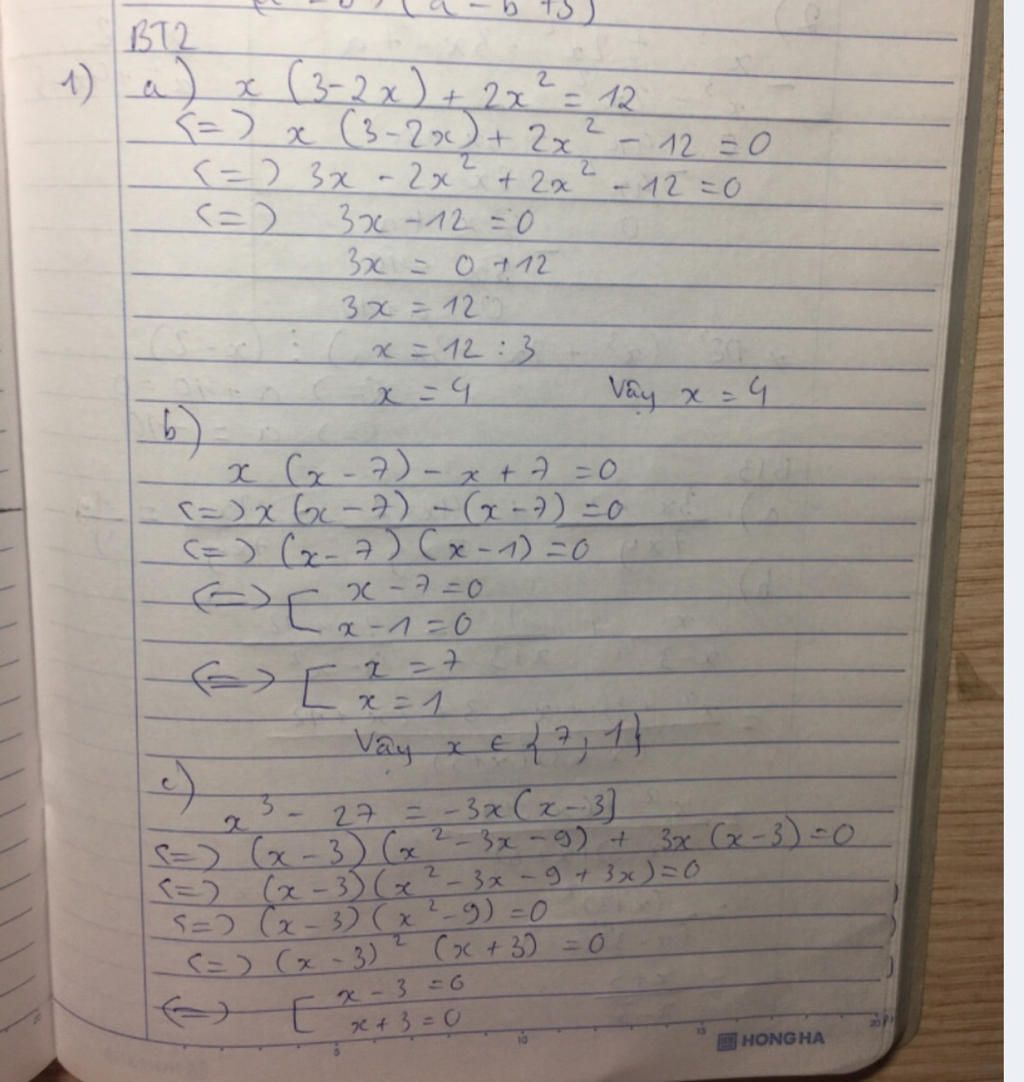 (a - b + 3)
BT2
1) a) x (3-2x) + 2x² = 12
<=> x (3-2x) + 2x² - 12 = 0
<=> 3x - 2x² + 2x² - 12 = 0
<=> 3x - 12 = 0
3x = 0 + 12
3x = 12
x = 12 : 3
x = 4 Vậy x = 4
b)
x (x - 7) - x + 7 = 0
<=> x (x - 7) - (x - 7) = 0
<=> (x - 7) (x - 1) = 0
<=> [ x - 7 = 0
x - 1 = 0
<=> [ x = 7
x = 1
Vậy x ∈ {7; 1}
c)
x³ - 27 = -3x(x - 3)
<=> (x - 3) (x² - 3x - 9) + 3x (x - 3) = 0
<=> (x - 3) (x² - 3x - 9 + 3x) = 0
<=> (x - 3) (x² - 9) = 0
<=> (x - 3)² (x + 3) = 0
<=> [ x - 3 = 0
x + 3 = 0
5 10 15 20
HONG HA